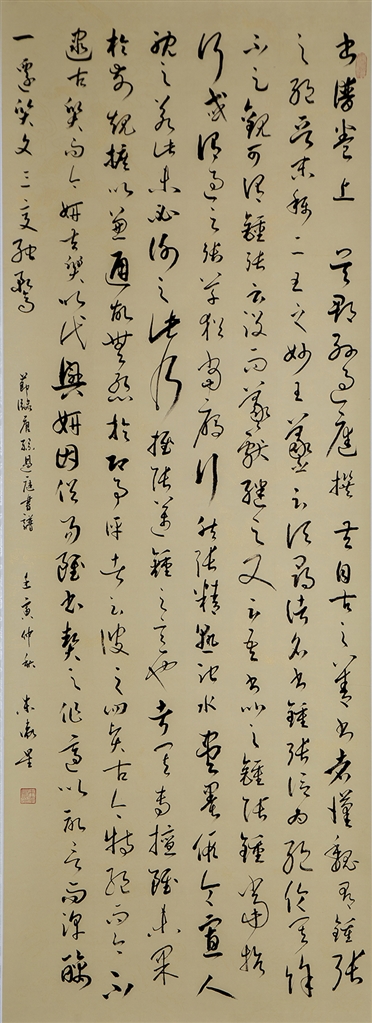 書譜卷上 吳郡孫過庭撰 夫自古之善書者漢魏有鍾張
之絕晉末稱二王之妙王羲之云頃尋諸名書鍾張信為絕倫其餘
不足觀可謂鍾張云沒而羲獻繼之又云吾書比之鍾張鍾當抗
行或謂過之張草猶當雁行然張精熟池水盡墨假令寡人
耽之若此未必謝之此乃推張邁鍾之意也考其專擅雖未果
於前規摭以兼通故無慚於即事評者云彼之四賢古今特絕而今不
逮古質而今妍夫質以代興妍因俗易雖書契之作適以記言而淳醨
一遷質文三變馳騖
節臨唐孫過庭書譜 壬寅仲秋 朱